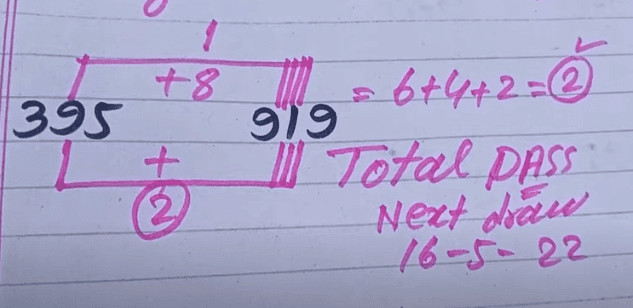 1
+8
= 6+4+2=2
395 919
+
Total PASS
2
Next draw
16-5-22